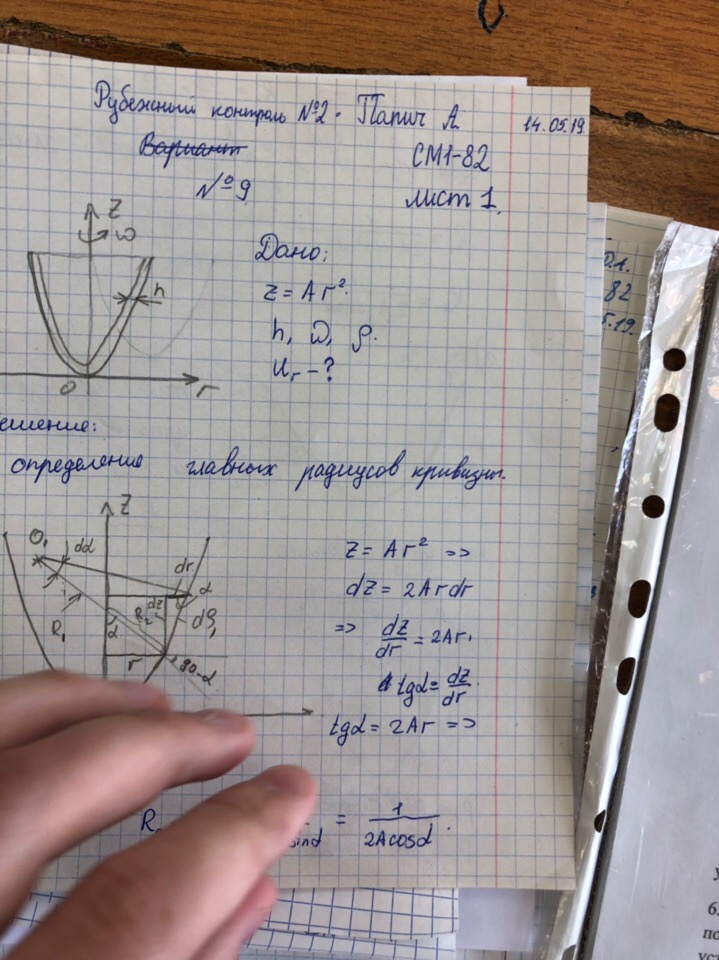 Рубежный контроль №2. Папич А. 14.05.19.
Вариант СМ1-82
№9 лист 1.
z
ω
h
0
r
Дано:
z = Ar².
h, ω, ρ.
u_r - ?
ешение:
определение главных радиусов кривизны.
z
O₁
dα
dr
α
dz
R₂
dS₁
R₁
α
r
90-α
z = Ar² =>
dz = 2Ardr
=> dz/dr = 2Ar.
tgα = dz/dr.
tgα = 2Ar =>
sinα = 1/(2Acosα).
0.1.
82
5.19.
6.
по
уст